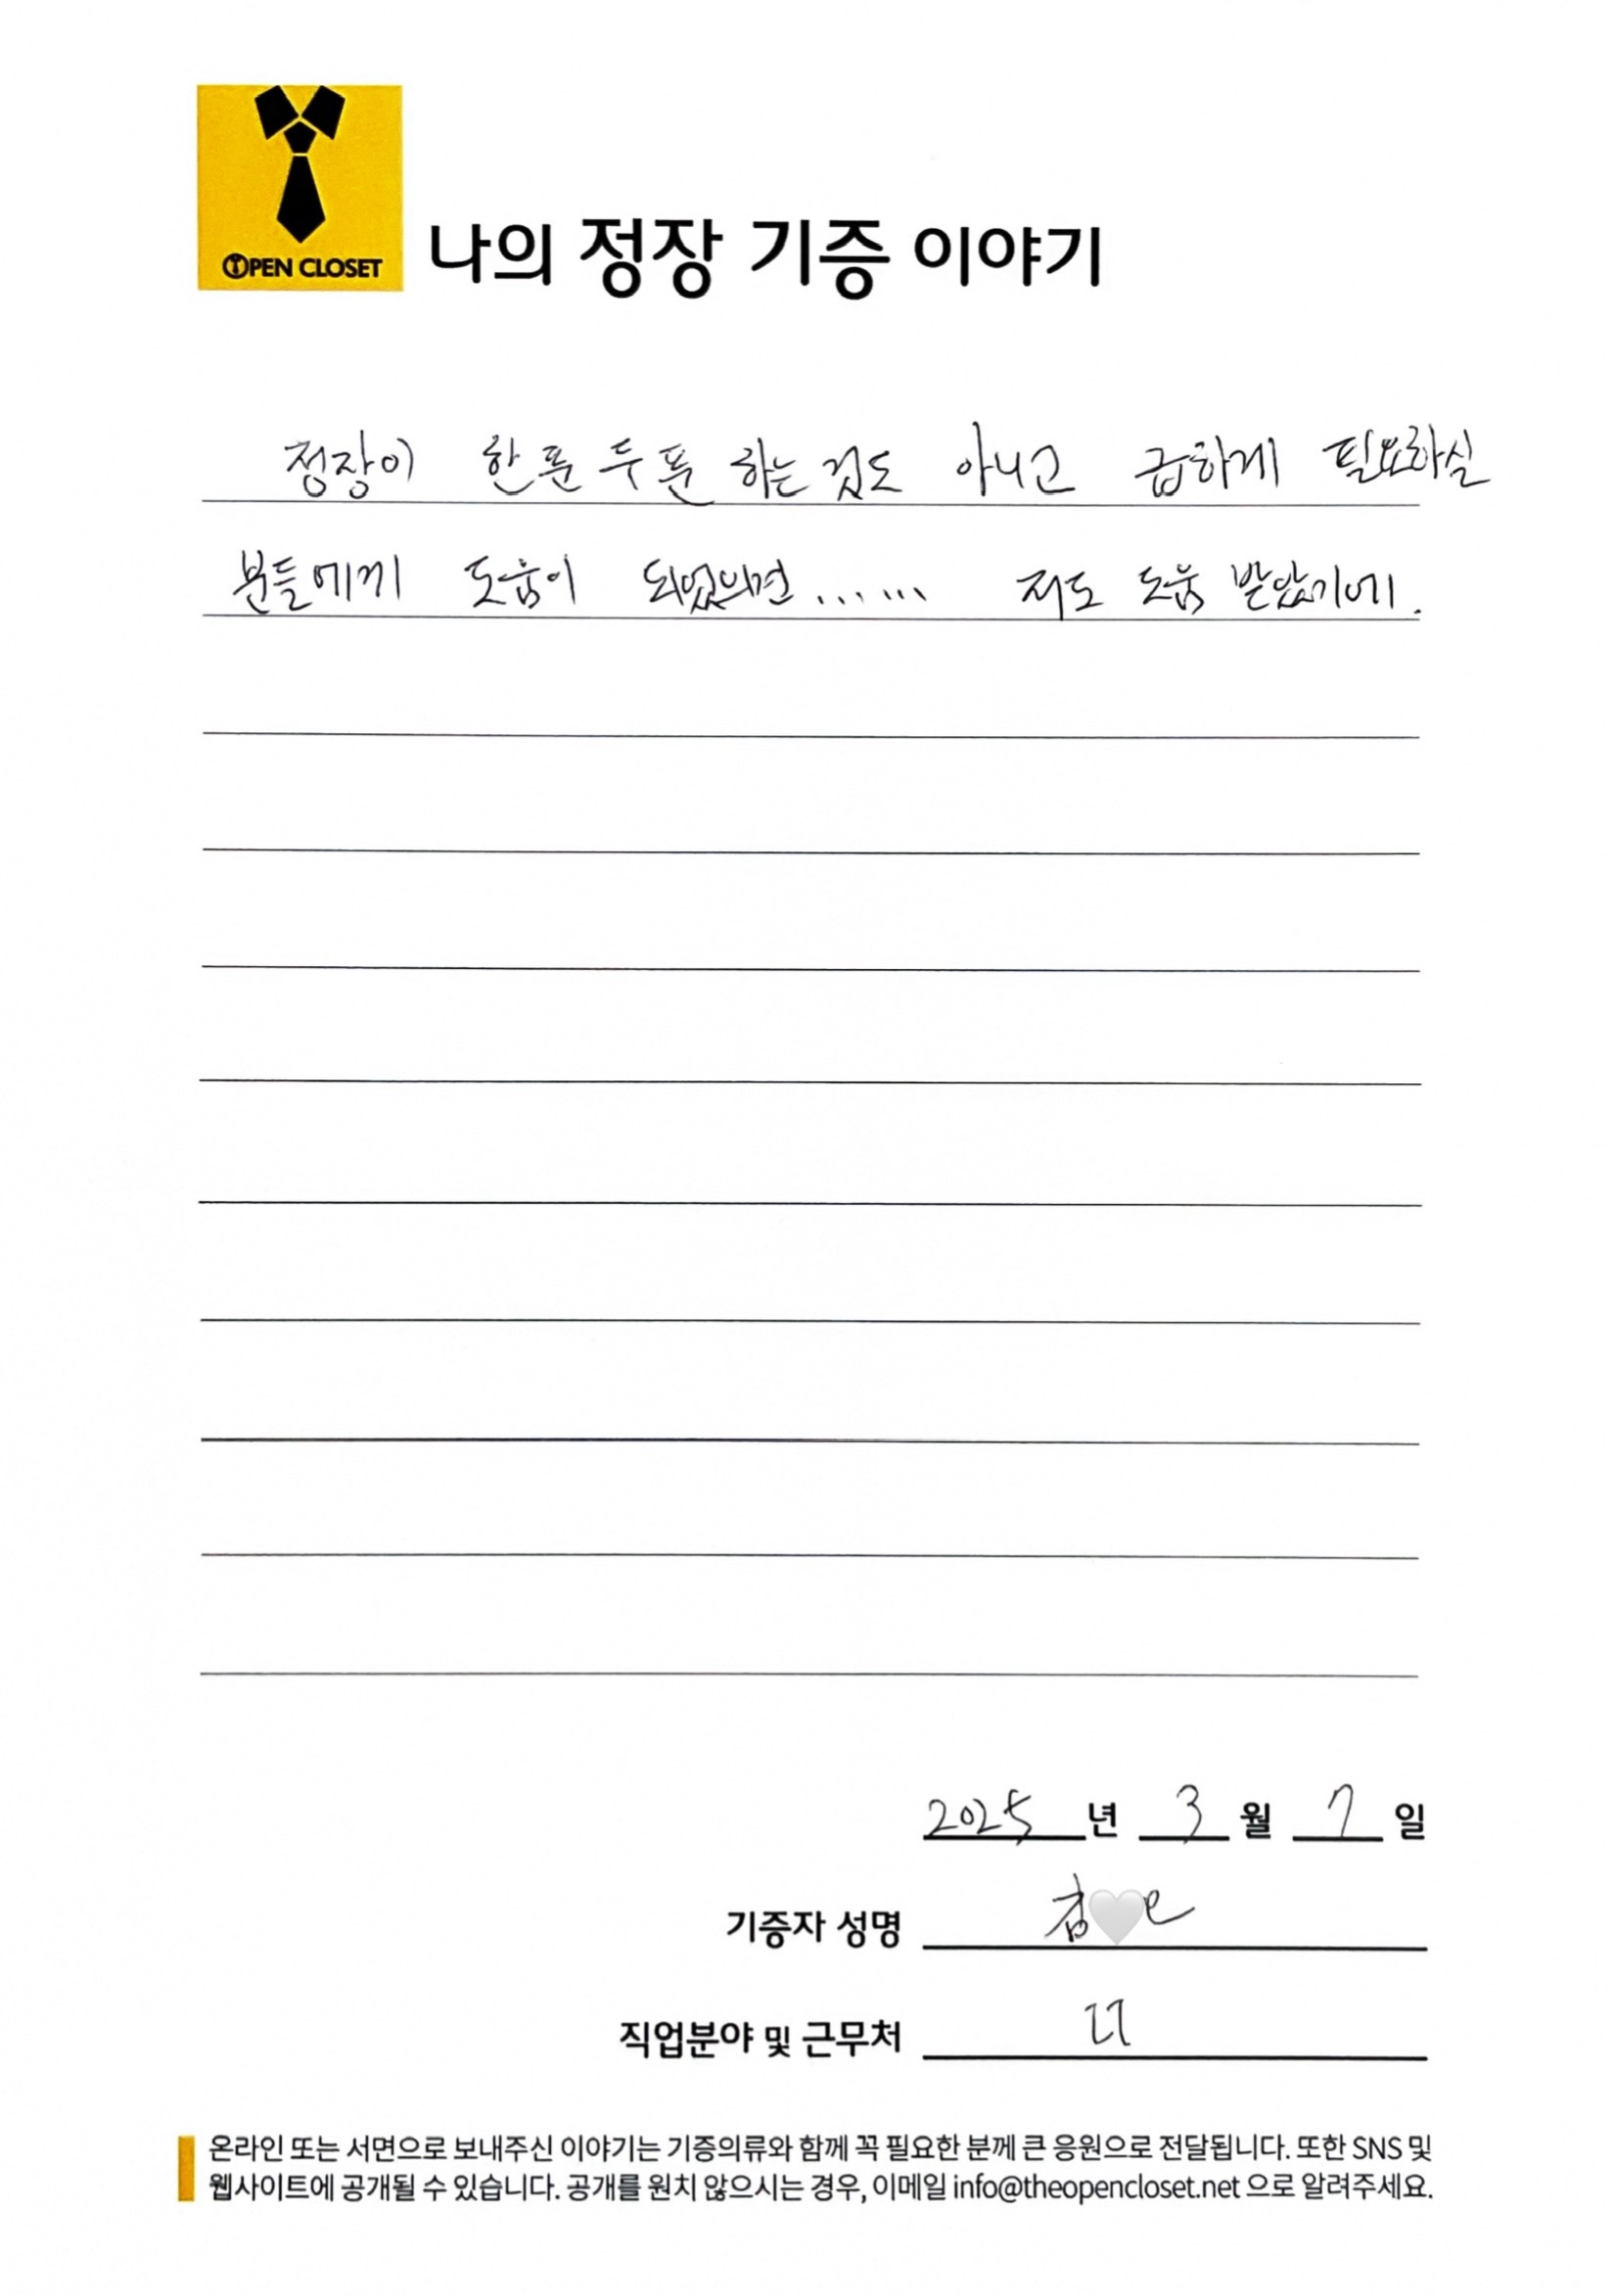 OPEN CLOSET
나의 정장 기증 이야기
정장이 한푼 두푼 하는것도 아니고 급하게 필요하실
분들에게 도움이 되었으면...... 저도 도움 받았기에.
2025 년 3 월 7 일
기증자 성명
직업분야 및 근무처
온라인 또는 서면으로 보내주신 이야기는 기증의류와 함께 꼭 필요한 분께 큰 응원으로 전달됩니다. 또한 SNS 및
웹사이트에 공개될 수 있습니다. 공개를 원치 않으시는 경우, 이메일 info@theopencloset.net 으로 알려주세요.